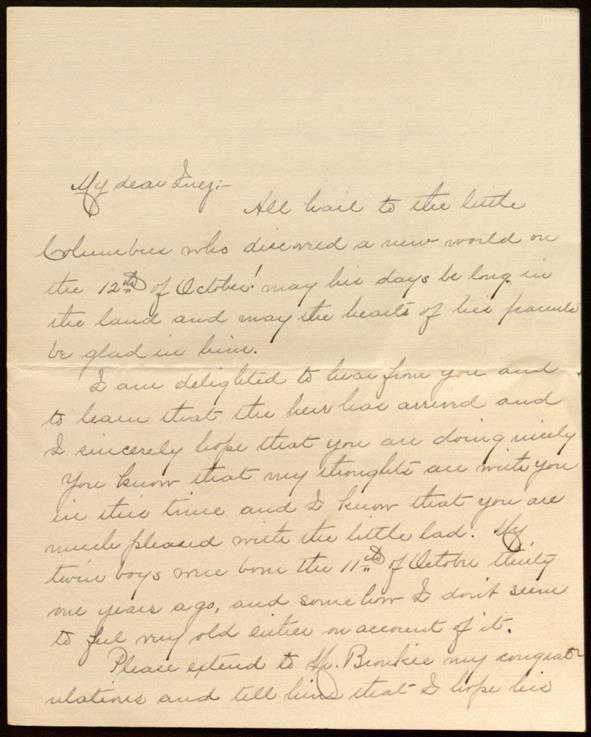 My dear Inez:-
All hail to the little
Columbus who discovered a new world on
the 12th of October! may his days be long in
the land and may the hearts of his parents
be glad in him.
I am delighted to hear from you and
to learn that the heir has arrived and
I sincerely hope that you are doing nicely
You know that my thoughts are with you
in this time and I know that you are
much pleased with the little lad. My
twin boys were born the 11th of October thirty
one years ago, and somehow I don't seem
to feel very old either on account of it.
Please extend to Mr. my congrat-
ulations and tell him that I hope his